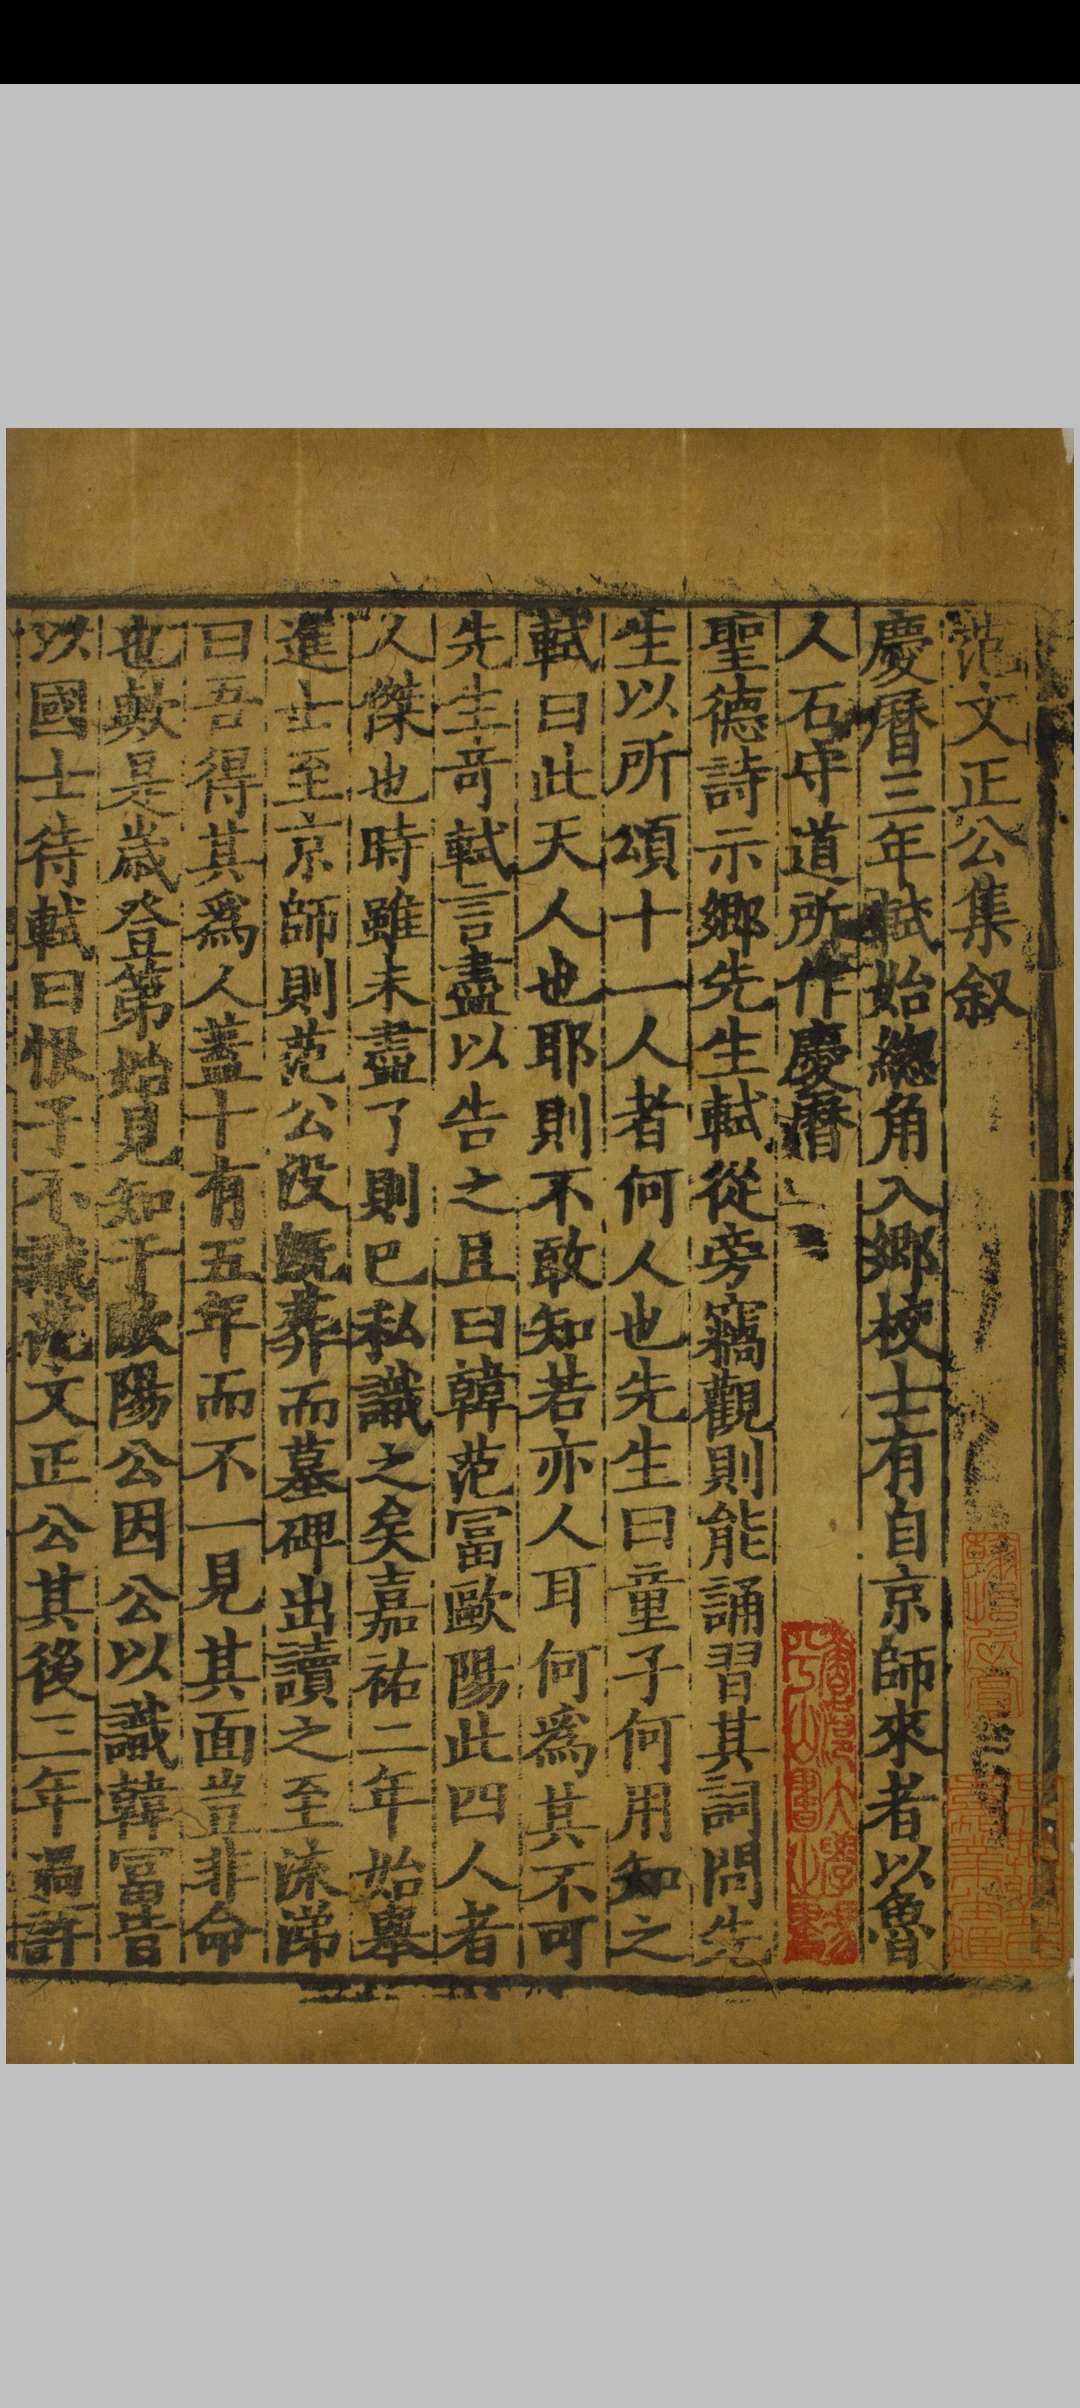 范文正公集叙
慶曆三年軾始總角入鄉校士有自京師來者以魯
人石守道所作慶曆
聖德詩示鄉先生軾從旁竊觀則能誦習其詞問先
生以所頌十一人者何人也先生曰童子何用知之
軾曰此天人也耶則不敢知若亦人耳何爲其不可
先生奇軾言盡以告之且曰韓范冨歐陽此四人者
人傑也時雖未盡了則已私識之矣嘉祐二年始舉
進士至京師則范公沒旣葬而墓碑出讀之至流涕
曰吾得其爲人蓋十有五年而不一見其面豈非命
也歟是歲登第始見知于歐陽公因公以識韓冨皆
以國士待軾曰恨子不識范文正公其後三年過許